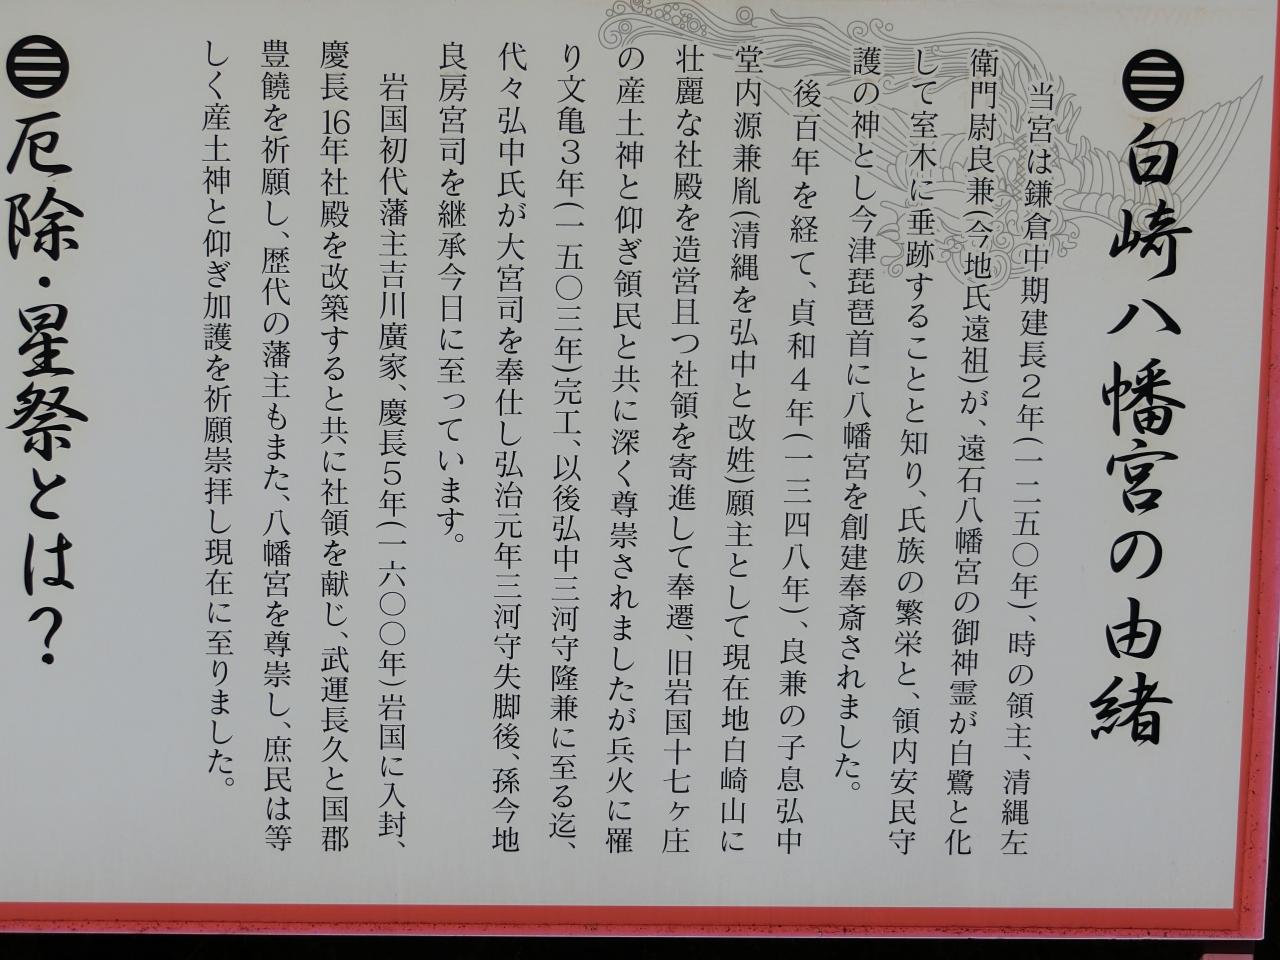 白崎八幡宮の由緒
当宮は鎌倉中期建長2年(一二五〇年)、時の領主、清縄左
衛門尉良兼(今地氏遠祖)が、遠石八幡宮の御神霊が白鷺と化
して室木に垂跡することと知り、氏族の繁栄と、領内安民守
護の神とし今津琵琶首に八幡宮を創建奉斎されました。
後百年を経て、貞和4年(一三四八年)、良兼の子息弘中
堂内源兼胤(清縄を弘中と改姓)願主として現在地白崎山に
壮麗な社殿を造営且つ社領を寄進して奉遷、旧岩国十七ヶ庄
の産土神と仰ぎ領民と共に深く尊崇されましたが兵火に罹
り文亀3年(一五〇三年)完工、以後弘中三河守隆兼に至る迄、
代々弘中氏が大宮司を奉仕し弘治元年三河守失脚後、孫今地
良房宮司を継承今日に至っています。
岩国初代藩主吉川廣家、慶長5年(一六〇〇年)岩国に入封、
慶長16年社殿を改築すると共に社領を献じ、武運長久と国郡
豊饒を祈願し、歴代の藩主もまた、八幡宮を尊崇し、庶民は等
しく産土神と仰ぎ加護を祈願崇拝し現在に至りました。
厄除・星祭とは?